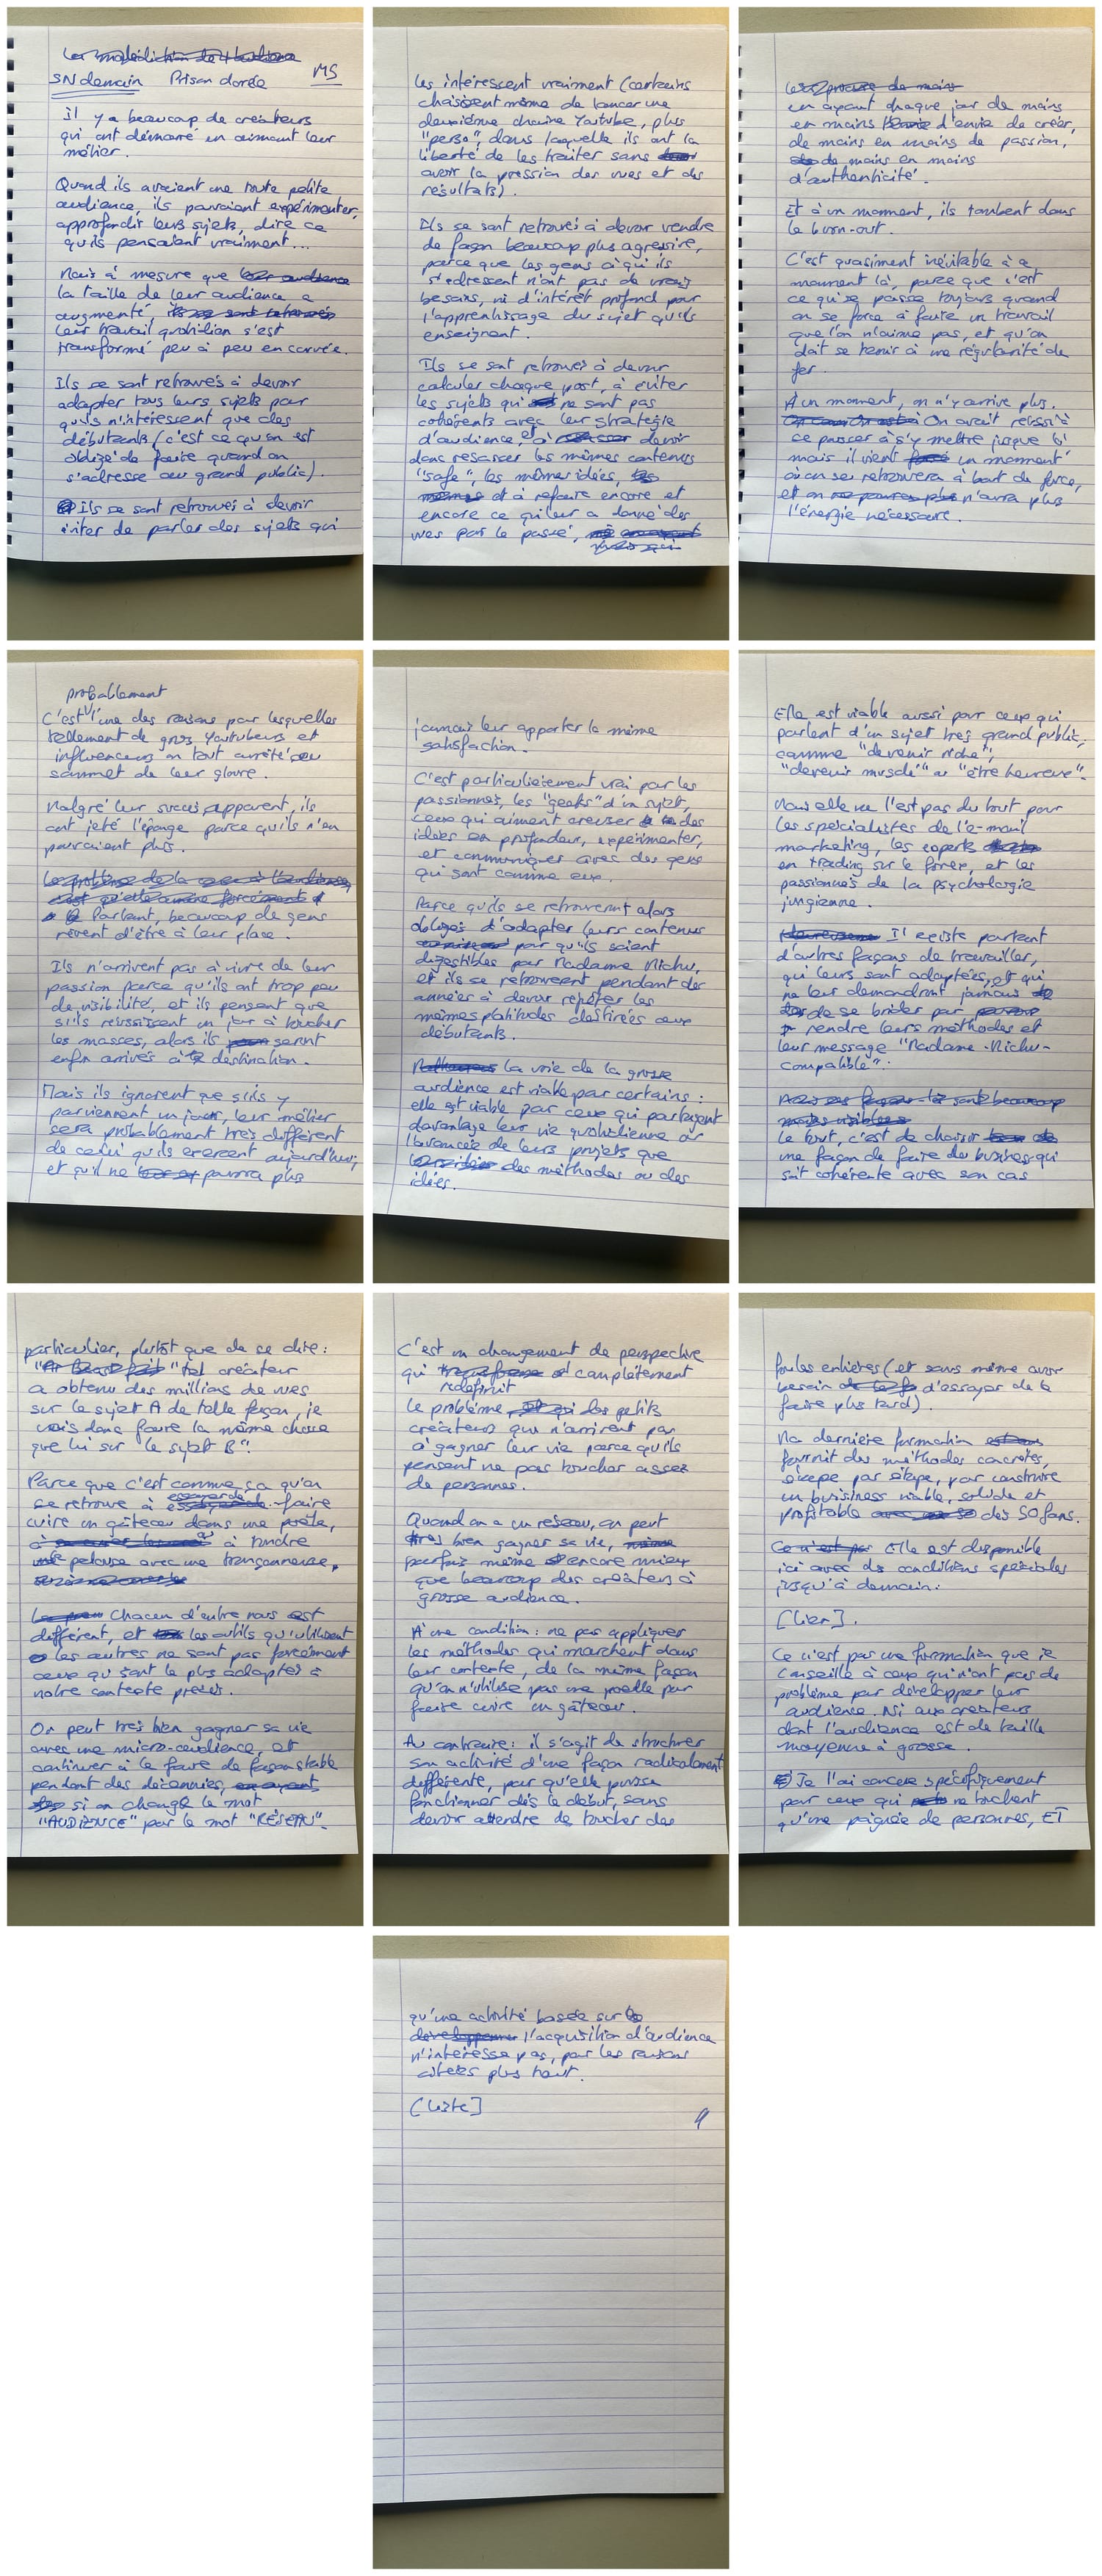 SN demain Prison dorée MS
Il y a beaucoup de créateurs
qui ont démarré en aimant leur
métier.
Quand ils avaient une toute petite
audience, ils pouvaient expérimenter,
approfondir leurs sujets, dire ce
qu'ils pensaient vraiment...
Mais à mesure que
la taille de leur audience a
augmenté,
leur travail quotidien s'est
transformé peu à peu en corvée.
Ils se sont retrouvés à devoir
adapter tous leurs sujets pour
qu'ils n'intéressent que des
débutants (c'est ce qu'on est
obligé de faire quand on
s'adresse au grand public).
Ils se sont retrouvés à devoir
éviter de parler des sujets qui
les intéressent vraiment (certains
choisissent même de lancer une
deuxième chaine Youtube, plus
"perso", dans laquelle ils ont la
liberté de les traiter sans
avoir la pression des vues et des
résultats).
Ils se sont retrouvés à devoir vendre
de façon beaucoup plus agressive,
parce que les gens à qui ils
s'adressent n'ont pas de vrais
besoins, ni d'intérêt profond pour
l'apprentissage du sujet qu'ils
enseignent.
Ils se sont retrouvés à devoir
calculer chaque post, à éviter
les sujets qui ne sont pas
cohérents avec leur stratégie
d'audience, et à devoir
donc ressasser les mêmes contenus
"safe", les mêmes idées,
et à refaire encore et
encore ce qui leur a donné des
vues par le passé,
en ayant chaque jour de moins
en moins d'envie de créer,
de moins en moins de passion,
de moins en moins
d'authenticité.
Et à un moment, ils tombent dans
le burn-out.
C'est quasiment inévitable à ce
moment là, parce que c'est
ce qui se passe toujours quand
on se force à faire un travail
que l'on n'aime pas, et qu'on
doit se tenir à une régularité de
fer.
A un moment, on n'y arrive plus.
On avait réussi à
se pousser à s'y mettre jusque là
mais il vient un moment
où on se retrouvera à bout de force,
et on n'aura plus
l'énergie nécessaire.
probablement
C'est l'une des raisons pour lesquelles
tellement de gros Youtubeurs et
influenceurs on tout arrêté au
sommet de leur gloire.
Malgré leur succès apparent, ils
ont jeté l'éponge parce qu'ils n'en
pouvaient plus.
Pourtant, beaucoup de gens
rêvent d'être à leur place.
Ils n'arrivent pas à vivre de leur
passion parce qu'ils ont trop peu
de visibilité, et ils pensent que
s'ils réussissent un jour à toucher
les masses, alors ils seront
enfin arrivés à destination.
Mais ils ignorent que s'ils y
parviennent un jour, leur métier
sera probablement très différent
de celui qu'ils exercent aujourd'hui,
et qu'il ne pourra plus
jamais leur apporter la même
satisfaction.
C'est particulièrement vrai pour les
passionnés, les "geeks" d'un sujet,
ceux qui aiment creuser des
idées en profondeur, expérimenter,
et communiquer avec des gens
qui sont comme eux.
Parce qu'ils se retrouvent alors
obligés d'adapter leurs contenus
pour qu'ils soient
digestibles par Madame Michu,
et ils se retrouvent pendant des
années à devoir répéter les
mêmes platitudes destinées aux
débutants.
La voie de la grosse
audience est viable pour certains :
elle est viable pour ceux qui partagent
davantage leur vie quotidienne ou
l'avancée de leurs projets que
des méthodes ou des
idées.
Elle est viable aussi pour ceux qui
parlent d'un sujet très grand public,
comme "devenir riche",
"devenir musclé" ou "être heureux".
Mais elle ne l'est pas du tout pour
les spécialistes de l'e-mail
marketing, les experts
en trading sur le forex, et les
passionnés de la psychologie
jungienne.
Il existe pourtant
d'autres façons de travailler,
qui leurs sont adaptées, et qui
ne leur demandront jamais
de se brider pour
rendre leurs méthodes et
leur message "Madame-Michu-
compatible".
Le tout, c'est de choisir
une façon de faire du business qui
soit cohérente avec son cas
particulier, plutôt que de se dire :
"tel créateur
a obtenu des millions de vues
sur le sujet A de telle façon, je
vais donc faire la même chose
que lui sur le sujet B".
Parce que c'est comme ça qu'on
se retrouve à essayer de faire
cuire un gâteau dans une poêle,
ou à tondre
une pelouse avec une tronçonneuse.
Chacun d'entre nous est
différent, et les outils qu'utilisent
les autres ne sont pas forcément
ceux qui sont le plus adaptés à
notre contexte précis.
On peut très bien gagner sa vie
avec une micro-audience, et
continuer à le faire de façon stable
pendant des décennies,
si on change le mot
"AUDIENCE" par le mot "RÉSEAU".
C'est un changement de perspective
qui redéfinit complètement
le problème des petits
créateurs qui n'arrivent pas
à gagner leur vie parce qu'ils
pensent ne pas toucher assez
de personnes.
Quand on a un réseau, on peut
très bien gagner sa vie,
parfois même encore mieux
que beaucoup des créateurs à
grosse audience.
A une condition : ne pas appliquer
les méthodes qui marchent dans
leur contexte, de la même façon
qu'on n'utilise pas une poelle pour
faire cuire un gâteau.
Au contraire : il s'agit de structurer
son activité d'une façon radicalement
différente, pour qu'elle puisse
fonctionner dès le début, sans
devoir attendre de toucher des
foules entières (et sans même avoir
besoin d'essayer de le
faire plus tard).
Ma dernière formation
fournit des méthodes concrètes,
étape par étape, pour construire
un business viable, solide et
profitable dès 50 fans.
Elle est disponible
ici avec des conditions spéciales
jusqu'à demain :
[Lien].
Ce n'est pas une formation que je
conseille à ceux qui n'ont pas de
problème pour développer leur
audience. Ni aux créateurs
dont l'audience est de taille
moyenne à grosse.
Je l'ai conçue spécifiquement
pour ceux qui ne touchent
qu'une poignée de personnes, ET
qu'une activité basée sur
l'acquisition d'audience
n'intéresse pas, pour les raisons
citées plus haut.